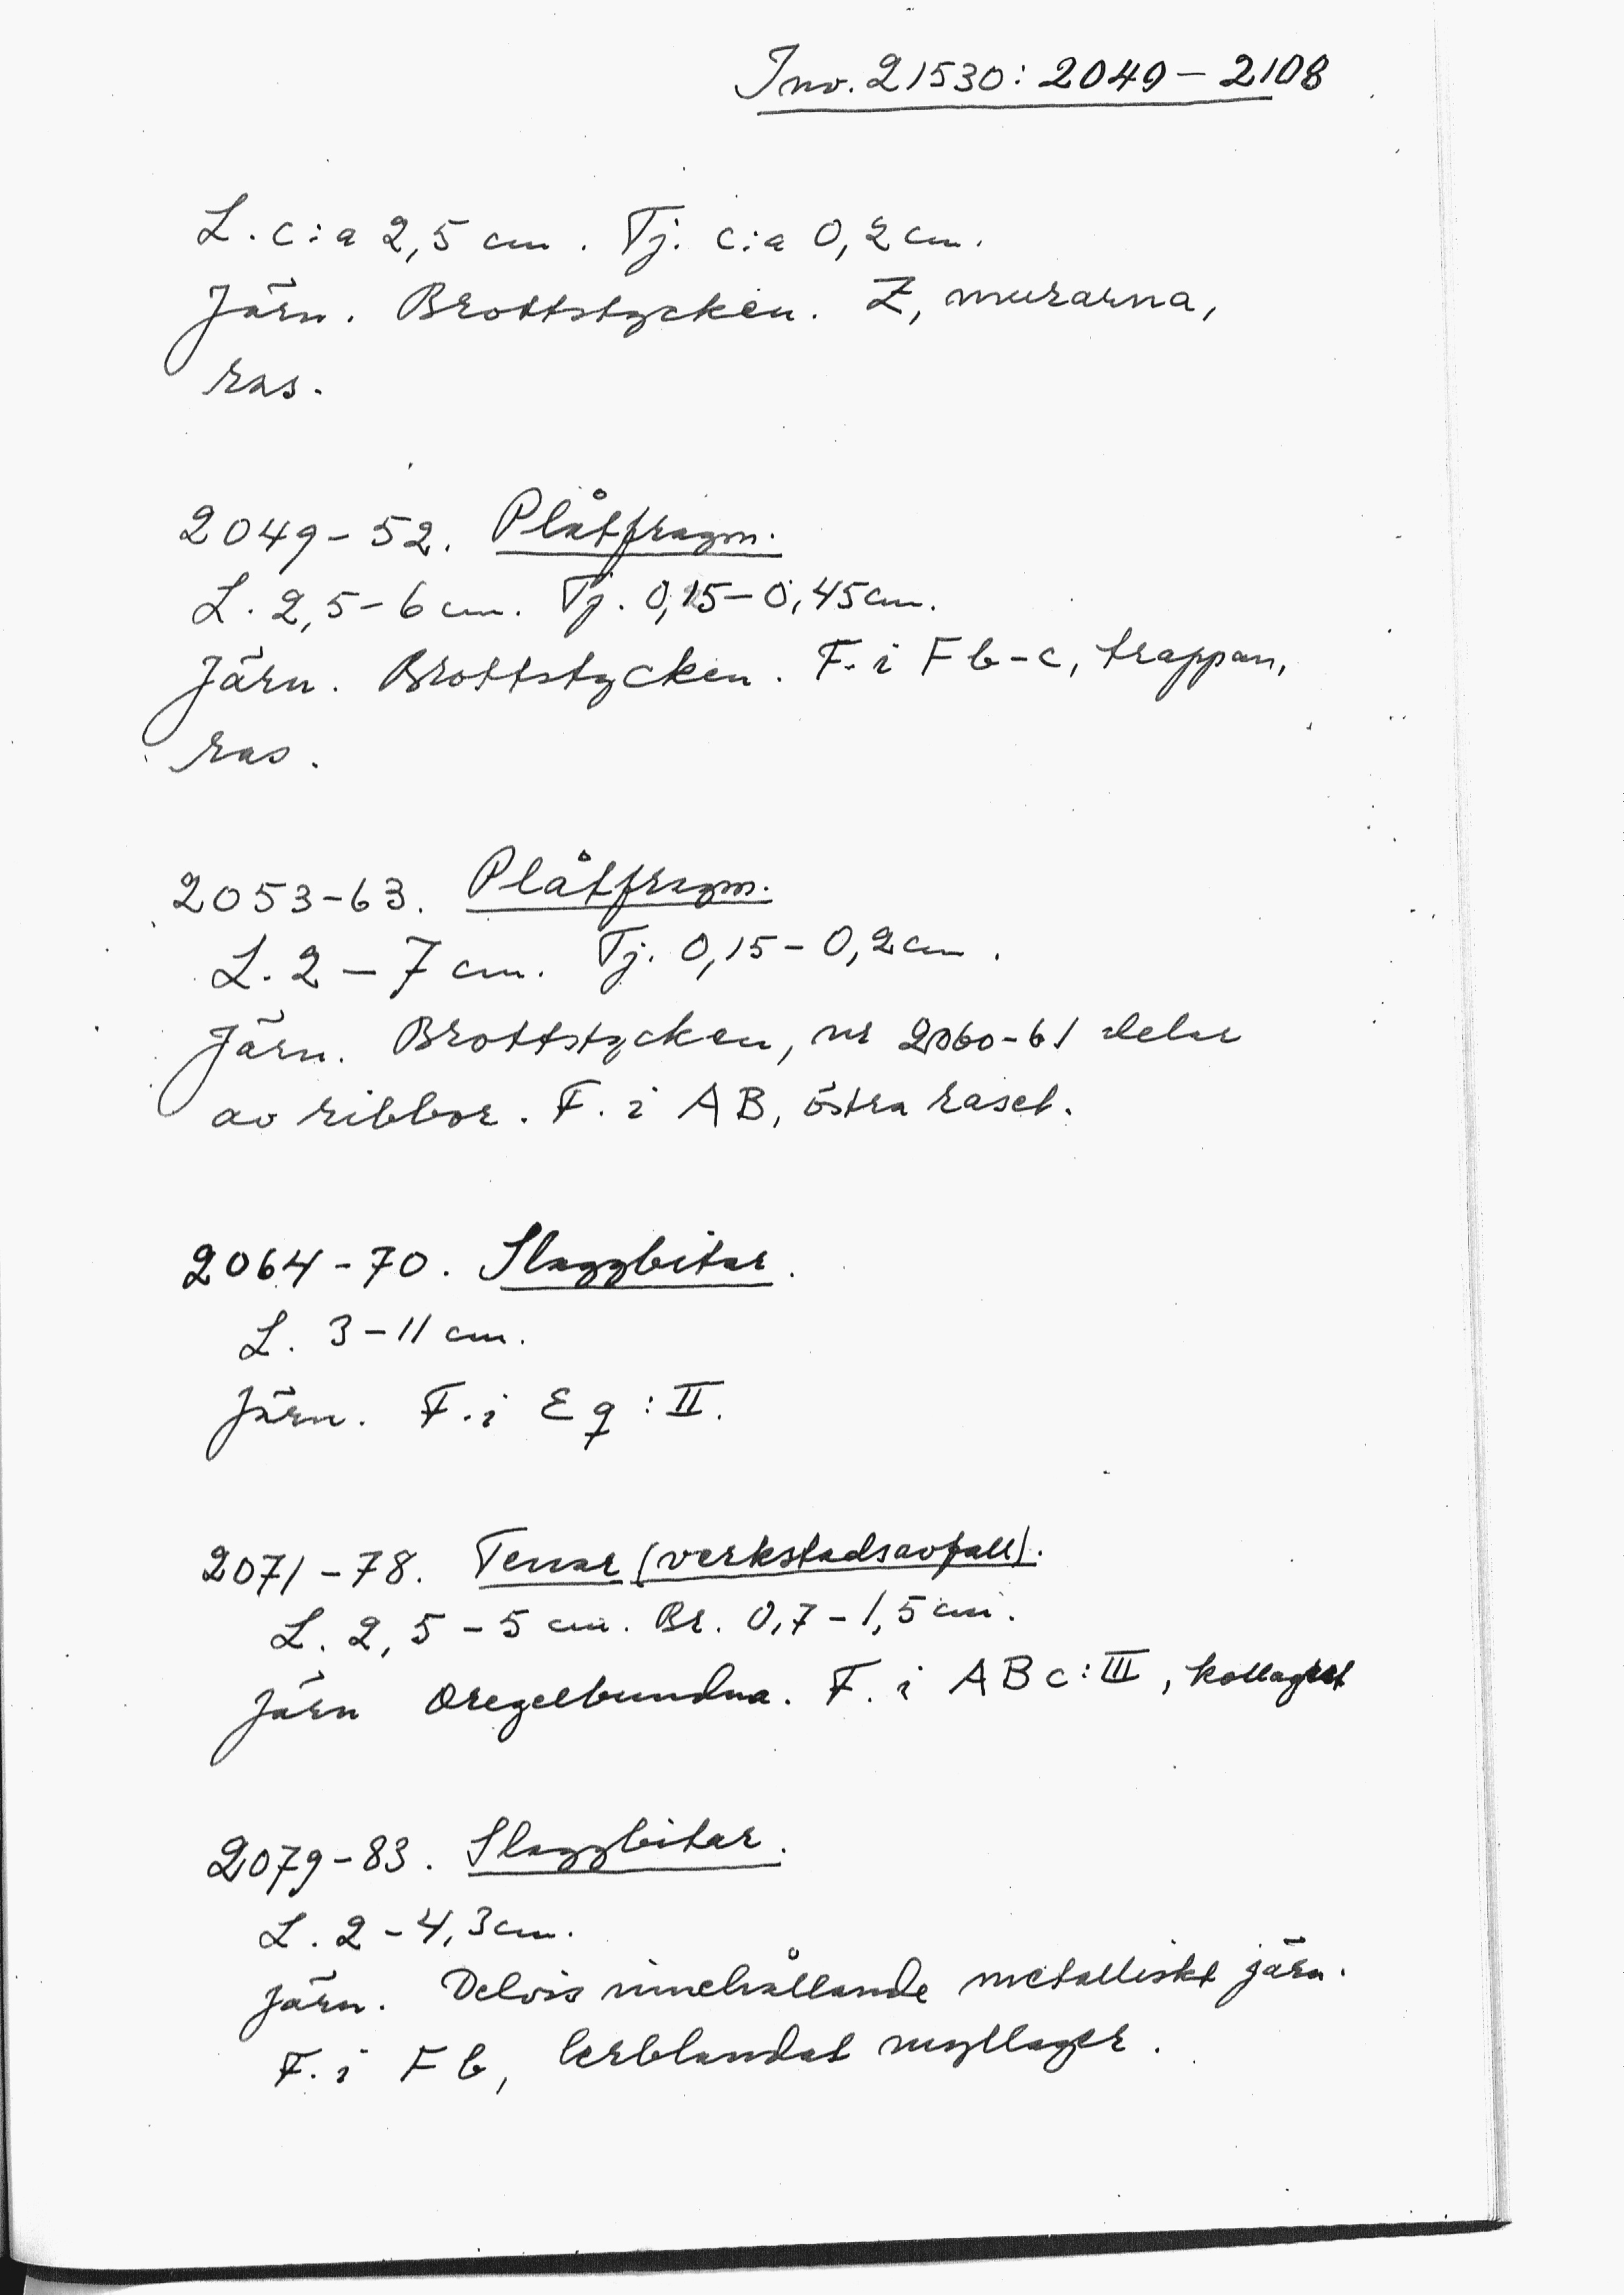 Inv. 21530: 2049 – 2108
L. c:a 2,5 cm. Tj. c:a 0,2 cm.
Järn. Brottstycken. Z, murarna,
ras.
2049-52. Plåtfragm.
L. 2,5-6 cm. Tj. 0,15-0,45 cm.
Järn. Brottstycken. F. i Fb-c, trappan,
ras.
2053-63. Plåtfragm.
L. 2 – 7 cm. Tj. 0,15-0,2 cm.
Järn. Brottstycken, nr 2060-61 delar
av ribbor. F. i AB, östra raset.
2064-70. Slaggbitar.
L. 3-11 cm.
Järn. F. i Eq:II.
2071-78. Tenar (verkstadsavfall).
L. 2,5-5 cm. Br. 0,7-1,5 cm.
Järn Oregelbundna. F. i ABc:III, kollagret
2079-83. Slaggbitar.
L. 2-4,3 cm.
Järn. Delvis innehållande metalliskt järn.
F. i Fb, lerblandat myllager.